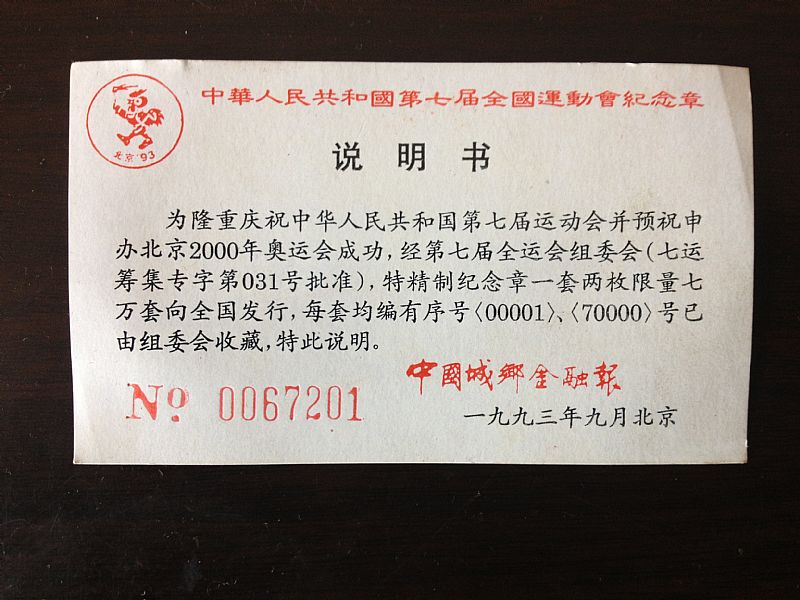 中華人民共和國第七届全國運動會紀念章
北京'93
说明书
为隆重庆祝中华人民共和国第七届运动会并预祝申
办北京2000年奥运会成功，经第七届全运会组委会（七运
筹集专字第031号批准），特精制纪念章一套两枚限量七
万套向全国发行，每套均编有序号〈00001〉、〈70000〉号已
由组委会收藏，特此说明。
中國城鄉金融報
№ 0067201
一九九三年九月北京